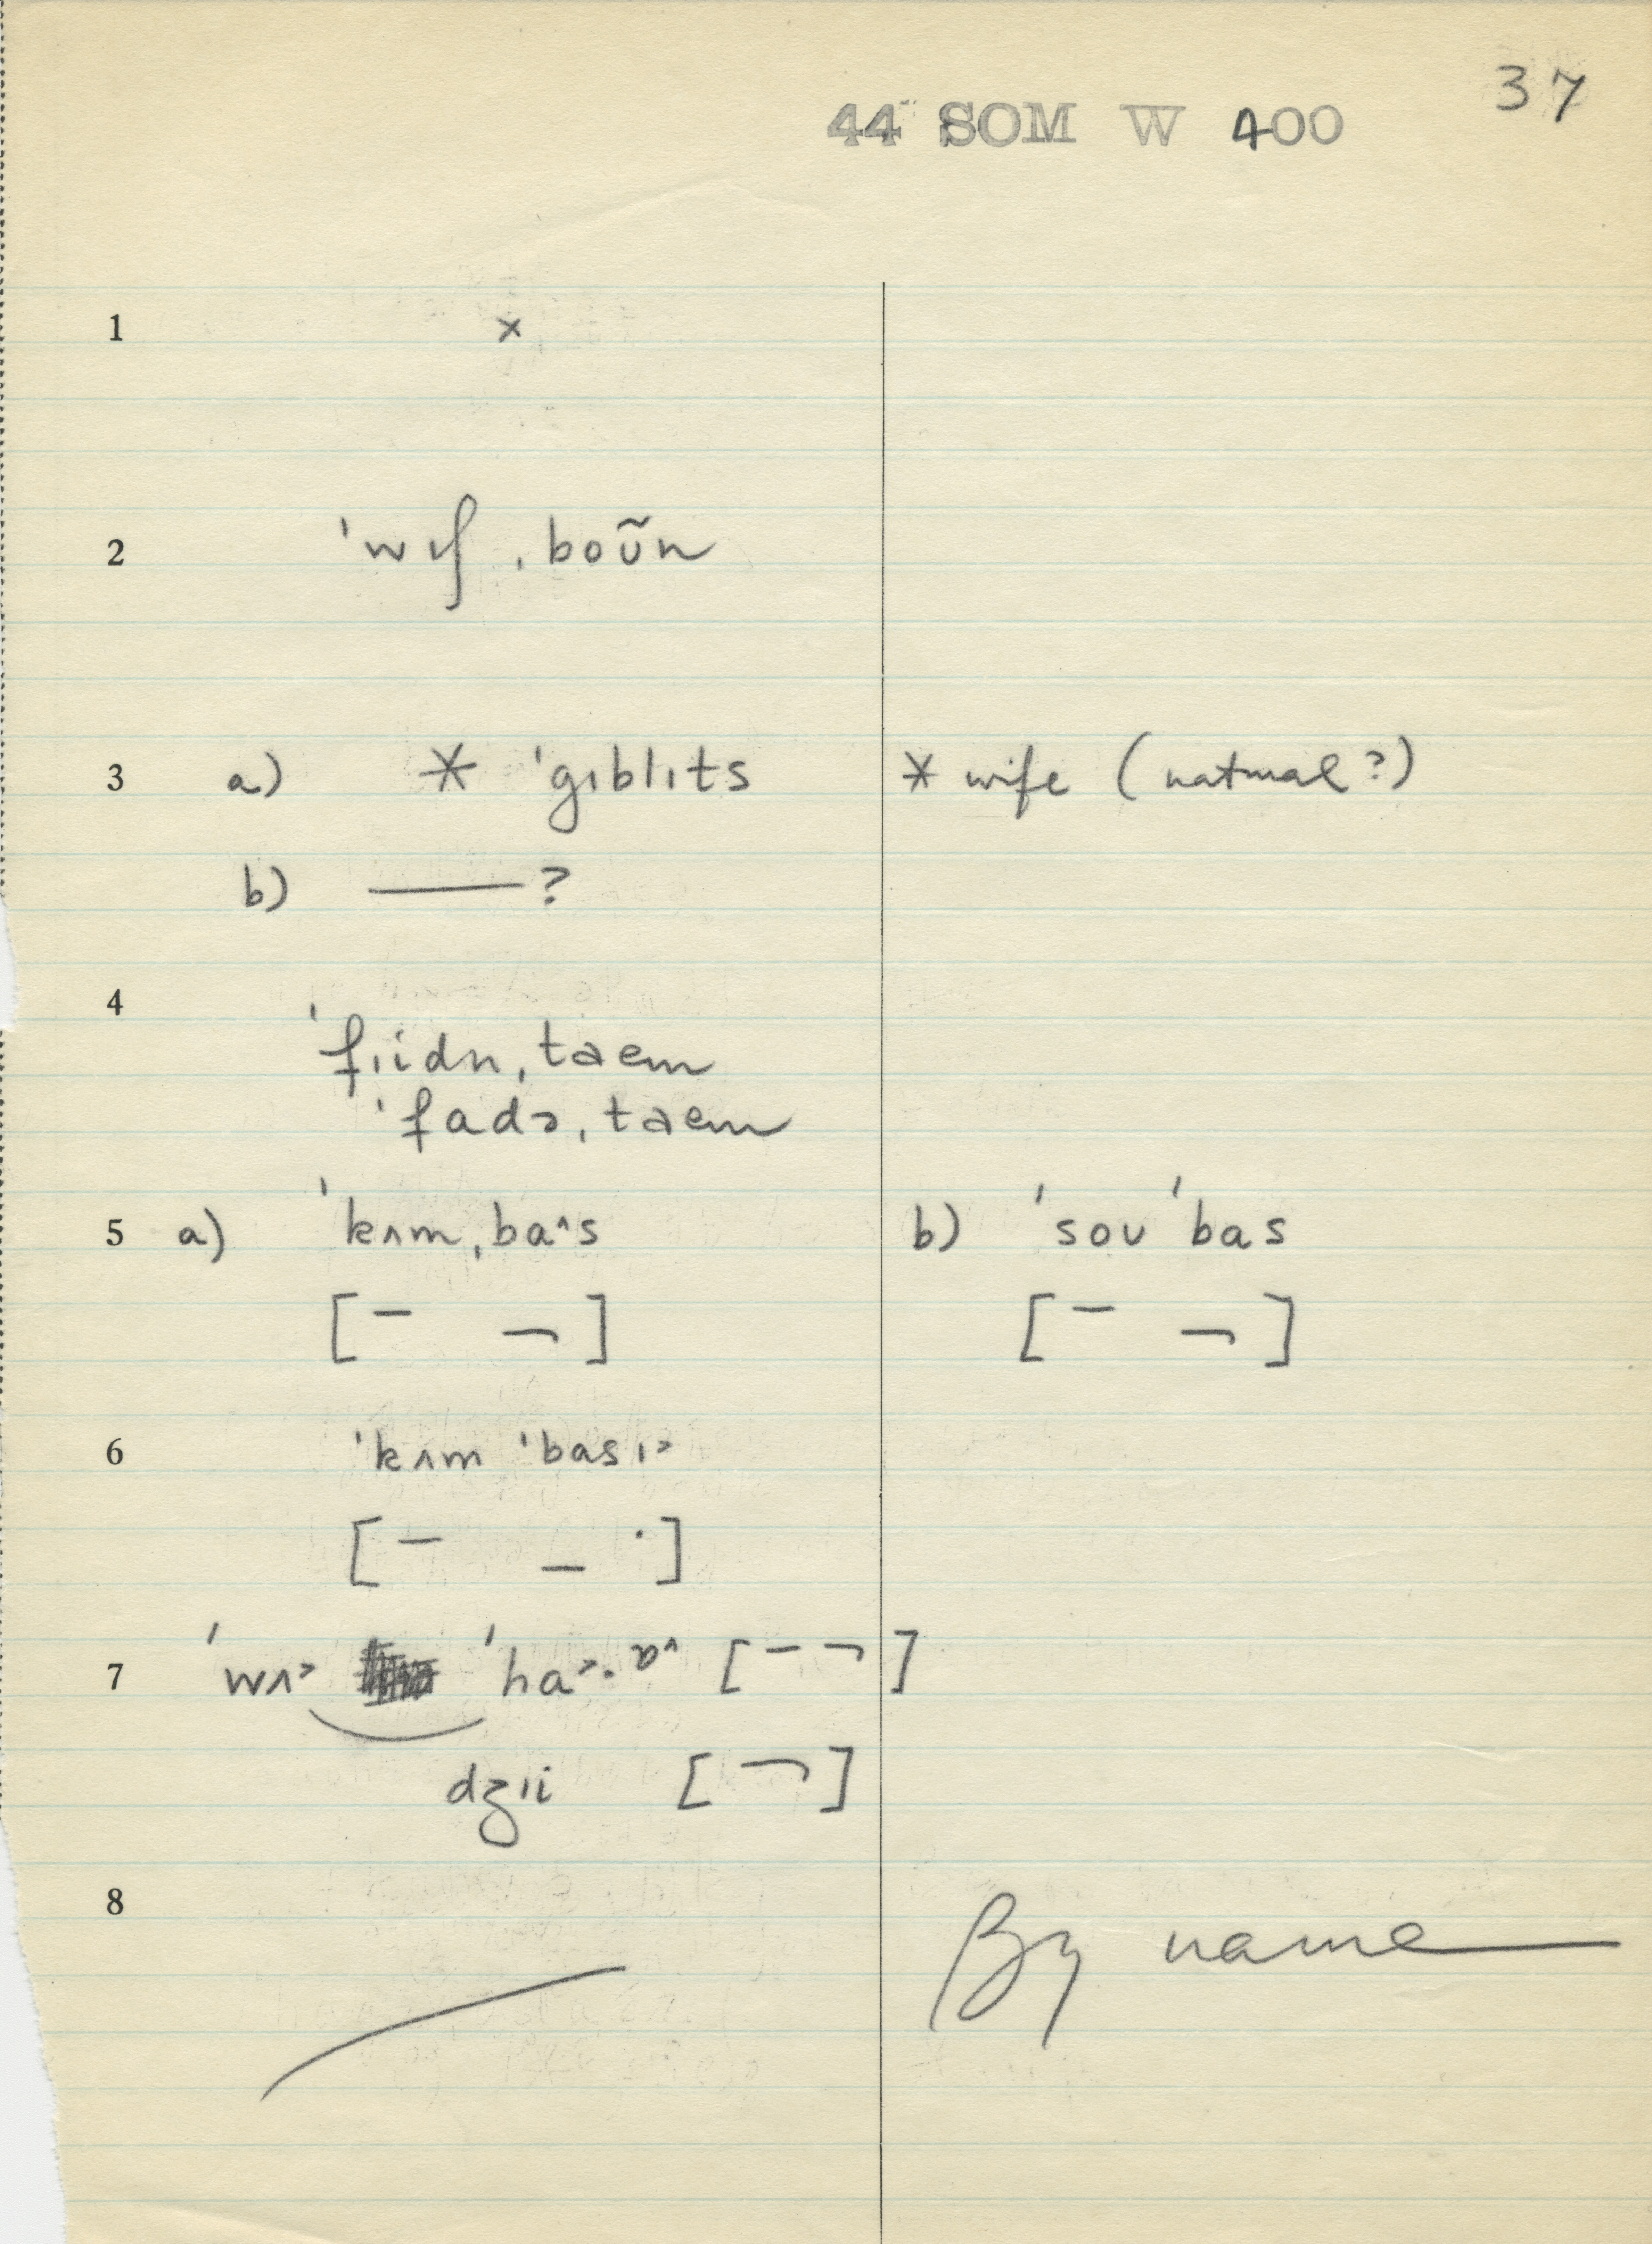 37
44 SOM W 400
1 ×
2 ˈwɪʃ ˌboʊ̃n
3 a) * ˈgɪblɪts * wife (natural?)
b) ——— ?
4
ˈfɪidn ˌtaem
ˈfadə ˌtaem
5 a) ˈkʌm ˌba^s b) ˈsoʊ ˈbas
[– ¬] [– ¬]
6 ˈkʌm ˈbasɪ˃
[– – ·]
7 ˈwʌ˃ ˈha˃·ɒ^ [– ¬]
dʒɪi [¬]
8
By name